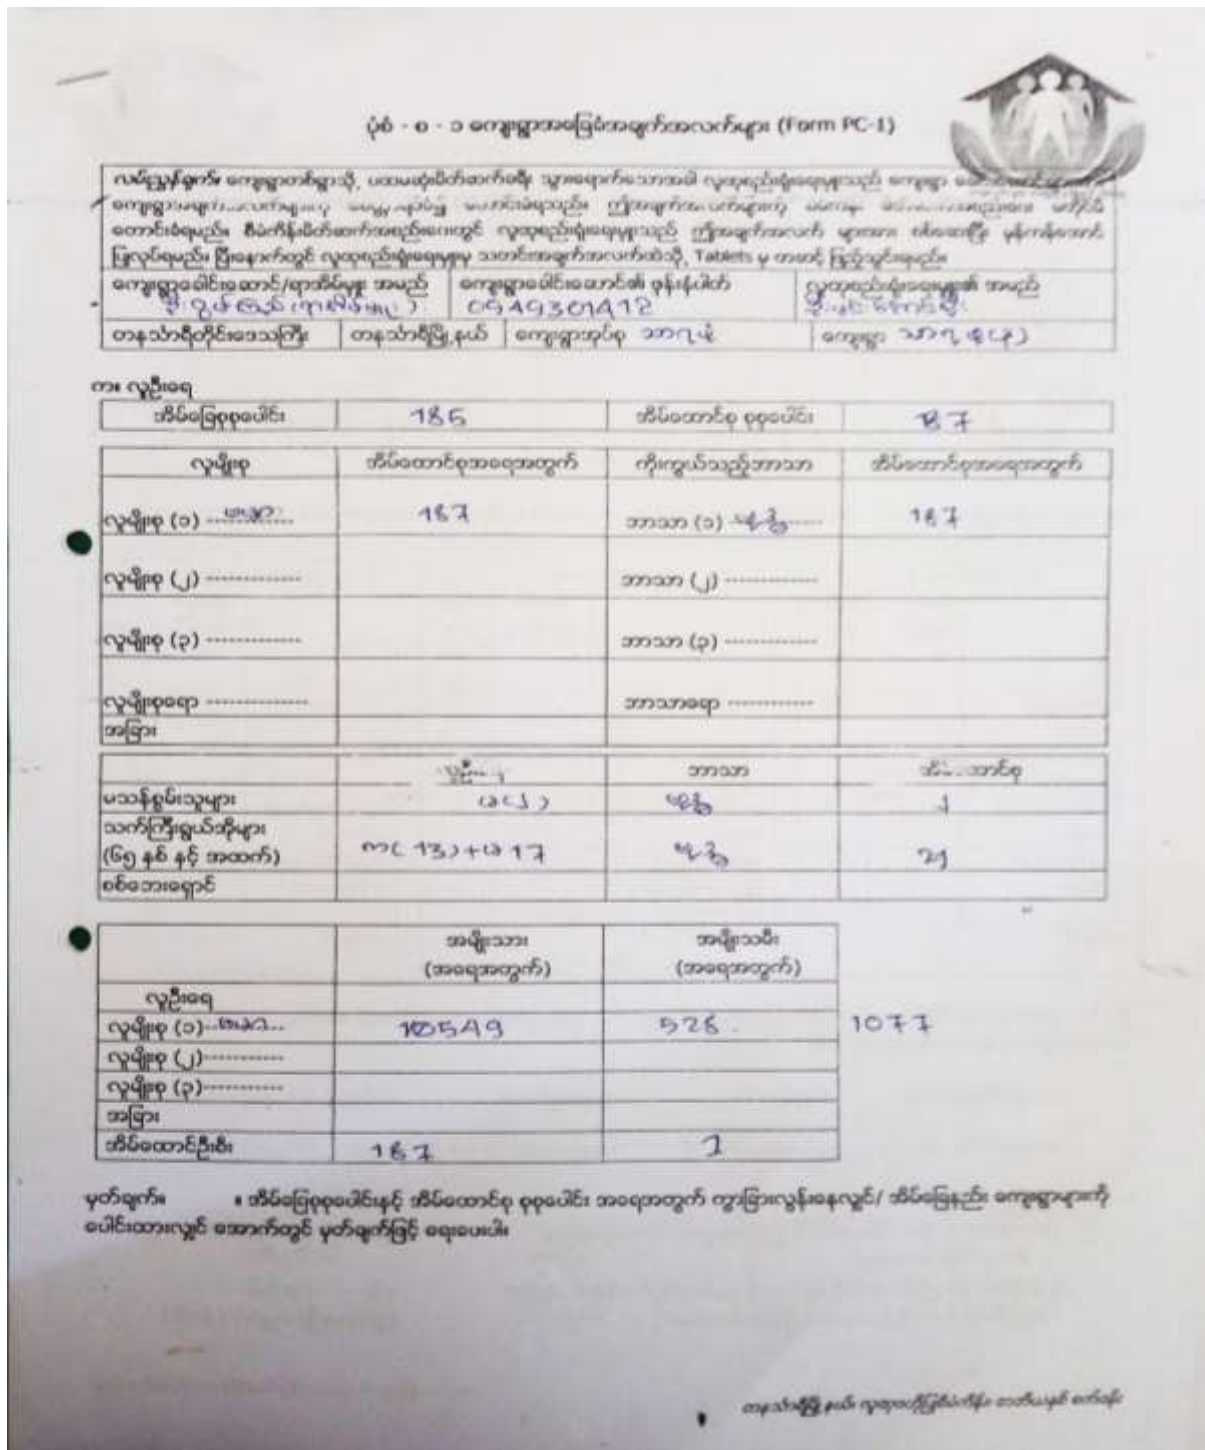 ပုံစံ - စ - ၁ ကျေးရွာအခြေခံအချက်အလက်များ (Form PC-1)
လမ်းညွှန်ချက်။ ကျေးရွာတစ်ရွာသို့ ပထမဆုံးမိတ်ဆက်ခရီး သွားရောက်သောအခါ လူထုစည်းရုံးရေးမှူးသည် ကျေးရွာ
ကောင်းခံရမည်။ စီမံကိန်းမိတ်ဆက်အစည်းဝေးတွင် လူထုစည်းရုံးရေးမှူးသည် ဤအချက်အလက် များအား စစ်ဆေးပြီး မှန်ကန်အောင်
ပြုလုပ်ရမည်။ ပြီးနောက်တွင် လူထုစည်းရုံးရေးမှူးမှ သတင်းအချက်အလက်ထဲသို့ Tablets မှ တဆင့် ဖြည့်သွင်းရမည်။
ကျေးရွာခေါင်းဆောင်/ရာအိမ်မှူး အမည် ကျေးရွာခေါင်းဆောင်၏ ဖုန်းနံပါတ် လူထုစည်းရုံးရေးမှူး၏ အမည်
0949301412
တနင်္သာရီတိုင်းဒေသကြီး တနင်္သာရီမြို့နယ် ကျေးရွာအုပ်စု ကျေးရွာ
က။ လူဦးရေ
အိမ်ခြေစုစုပေါင်း 185 အိမ်ထောင်စု စုစုပေါင်း 187
လူမျိုးစု အိမ်ထောင်စုအရေအတွက် ကိုးကွယ်သည့်ဘာသာ အိမ်ထောင်စုအရေအတွက်
လူမျိုးစု (၁) ဗမာ 187 ဘာသာ (၁) ဗုဒ္ဓ 187
လူမျိုးစု (၂) ------------- ဘာသာ (၂) -------------
လူမျိုးစု (၃) ------------- ဘာသာ (၃) -------------
လူမျိုးစုရော ------------- ဘာသာရော ------------
အခြား
ဘာသာ
မသန်စွမ်းသူများ ဗုဒ္ဓ 1
သက်ကြီးရွယ်အိုများ
(၆၅ နှစ် နှင့် အထက်) က(13)+မ 17 ဗုဒ္ဓ 29
စစ်ဘေးရှောင်
အမျိုးသား အမျိုးသမီး
(အရေအတွက်) (အရေအတွက်)
လူဦးရေ
လူမျိုးစု (၁) ဗမာ 549 528 1077
လူမျိုးစု (၂)-----------
လူမျိုးစု (၃)-----------
အခြား
အိမ်ထောင်ဦးစီး 187 1
မှတ်ချက်။ ။ အိမ်ခြေစုစုပေါင်းနှင့် အိမ်ထောင်စု စုစုပေါင်း အရေအတွက် ကွာခြားလွန်းနေလျှင်/ အိမ်ခြေနည်း ကျေးရွာများကို
ပေါင်းထားလျှင် အောက်တွင် မှတ်ချက်ဖြင့် ရေးပေးပါ။